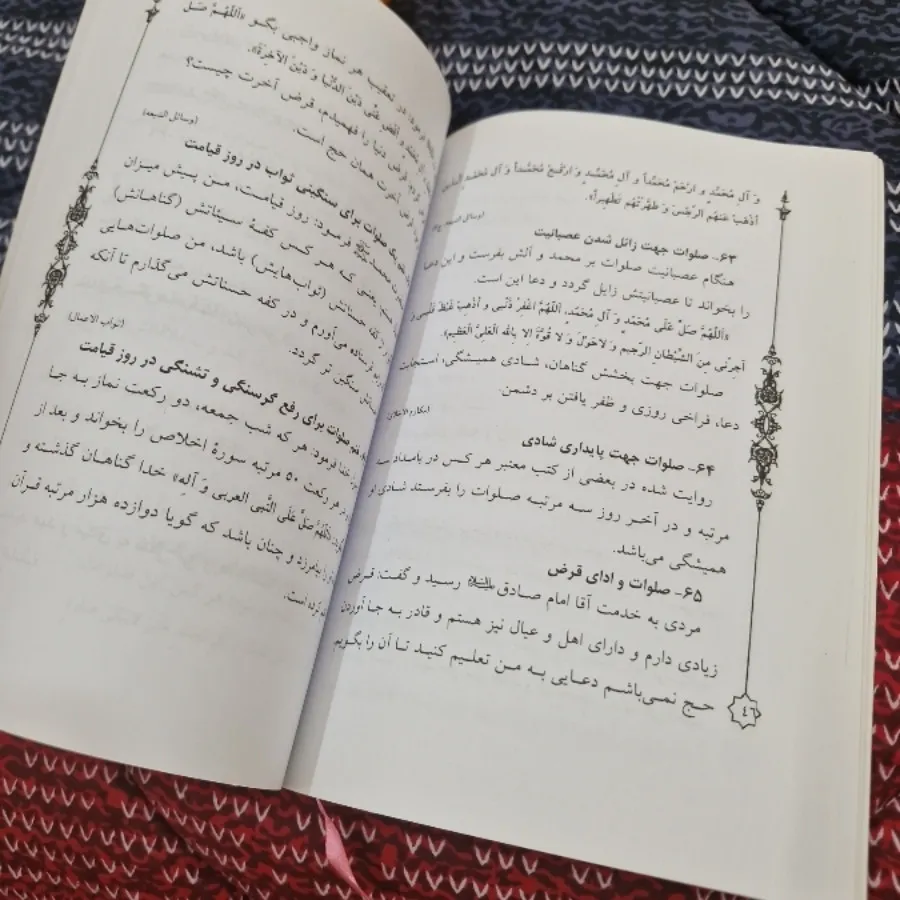 وَ آلِ مُحَمَّدٍ وَ ارْحَمْ مُحَمَّداً وَ آلِ مُحَمَّدٍ وَ ارْفَعْ مُحَمَّداً وَ آلِ مُحَمَّدٍ الَّذينَ
أَذْهَبَ عَنْهُمُ الرِّجْسَ وَ طَهَّرْتَهُمْ تَطْهيراً».
۶۳ـ صلوات جهت زائل شدن عصبانیت
هنگام عصبانیت صلوات بر محمد و آلش بفرست و این دعا
را بخواند تا عصبانیتش زایل گردد و دعا این است.
«اَللّهُمَّ صَلِّ عَلَی مُحَمَّدٍ وَ آلِ مُحَمَّدٍ، اَللّهُمَّ اغْفِرْ ذَنْبی و اَذْهِبْ غَیْظَ قَلْبی وَ
اَجِرْنی مِنَ الشَّیْطانِ الرَّجیمِ وَ لاحَوْلَ وَ لا قُوَّةَ اِلّا بِاللهِ الْعَلِیِّ الْعَظیمِ».
صلوات جهت بخشش گناهان، شادی همیشگی، استجابت
دعا، فراخی روزی و ظفر یافتن بر دشمن.
۶۴ـ صلوات جهت پایداری شادی
روایت شده در بعضی از کتب معتبر هر کس در بامداد سه
مرتبه و در آخر روز سه مرتبه صلوات را بفرستد شادی او
همیشگی می‌باشد.
۶۵ـ صلوات و ادای قرض
مردی به خدمت آقا امام صادق علیه‌السلام رسید و گفت: قرض
زیادی دارم و دارای اهل و عیال نیز هستم و قادر به جا آوردن
حج نمی‌باشم دعایی به من تعلیم کنید تا آن را بگویم
۴۶
در تعقیب هر نماز واجبی بگو «اَللّهُمَّ صَلِّ
وَ اقْضِ عَنّی دَیْنَ الدُّنْیا وَ دَیْنَ الآخِرَةِ».
قرض دنیا را فهمیدم، قرض آخرت چیست؟
آخرت همان حج است.
(وسائل الشیعه)
صلوات برای سنگینی ثواب در روز قیامت
محمد فرمود: روز قیامت، من پیش میزان
یعنی که هر کس کفۀ سیئاتش (گناهانش)
حسناتش (ثواب‌هایش) باشد، من صلوات‌هایی
فرستاده می‌آورم و در کفه حسناتش می‌گذارم تا آنکه
سنگین تر گردد.
(ثواب الاعمال)
صلوات برای رفع گرسنگی و تشنگی در روز قیامت
خدا فرمود: هر که شب جمعه، دو رکعت نماز به جا
در هر رکعت ۵۰ مرتبه سورۀ اخلاص را بخواند و بعد از
«اَللّهُمَّ صَلِّ عَلَی النَّبی العربی وَ آلِهِ» خدا گناهان گذشته و
بیامرزد و چنان باشد که گویا دوازده هزار مرتبه قرآن
کرده است.